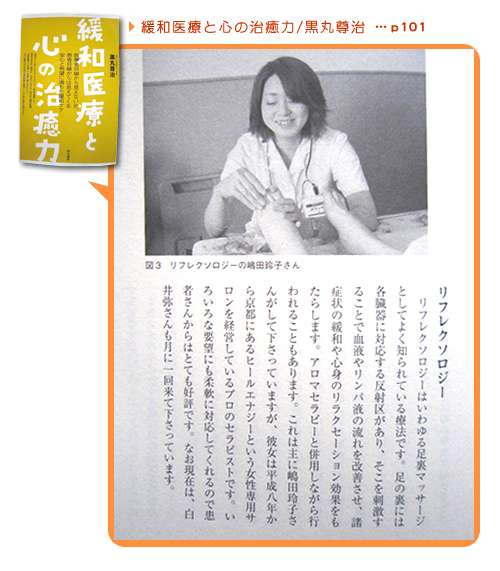 緩和医療と心の治癒力/黒丸尊治 …p101
黒丸尊治
緩和医療と
心の治癒力
図3 リフレクソロジーの嶋田玲子さん
リフレクソロジー
リフレクソロジーはいわゆる足裏マッサージ
としてよく知られている療法です。足の裏には
各臓器に対応する反射区があり、そこを刺激す
ることで血液やリンパ液の流れを改善させ、諸
症状の緩和や心身のリラクセーション効果をも
たらします。アロマセラピーと併用しながら行
われることもあります。これは主に嶋田玲子さ
んがして下さっていますが、彼女は平成八年か
ら京都にあるヒールエナジーという女性専用サ
ロンを経営しているプロのセラピストです。い
ろいろな要望にも柔軟に対応してくれるので患
者さんからはとても好評です。なお現在は、白
井弥さんも月に一回来て下さっています。